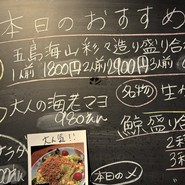 本日のおすすめ
五島海山彩々造り盛り合
1人前 1800円 2人前 2900円 3人
大人の海老マヨ
980
名物 生
鯨盛り合
2種
3
サラダ
大人気!!
本日の〆